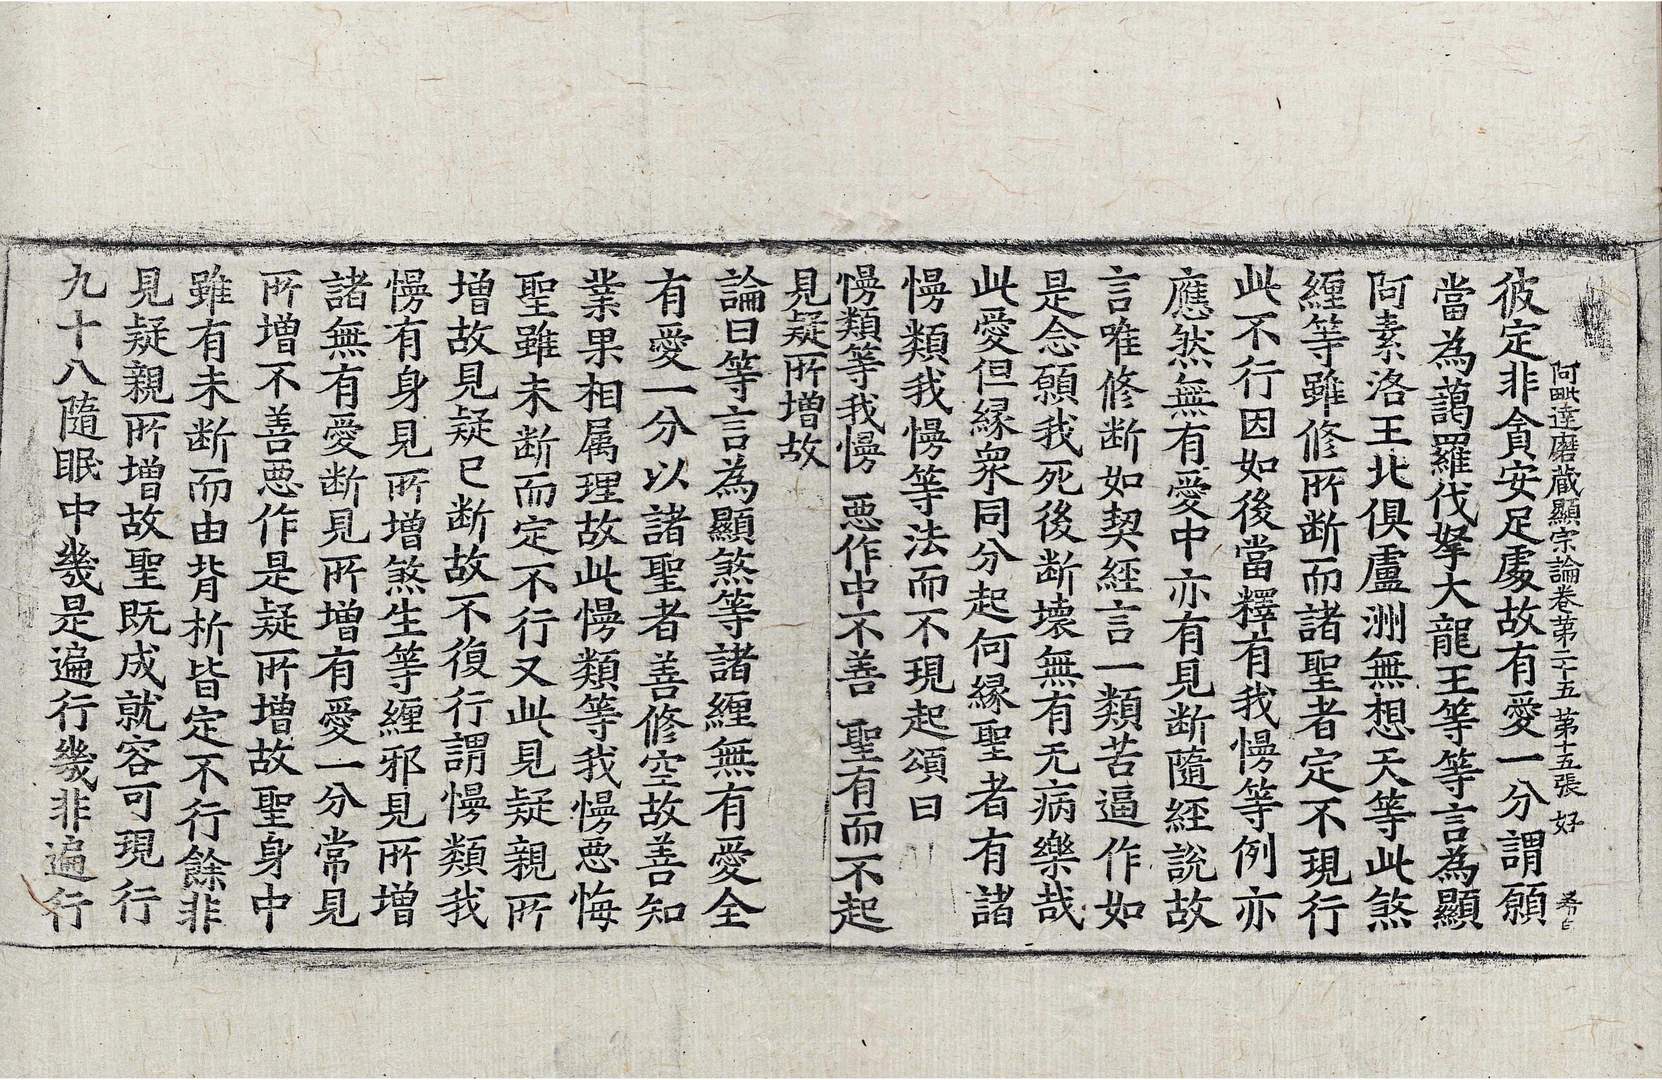 阿毗達磨藏顯宗論卷第二十五 第十五張 好
彼定非貪安足處故有愛一分謂願
當為藹羅伐拏大龍王等等言為顯
阿素洛王北俱盧洲無想天等此煞
纏等雖修所断而諸聖者定不現行
此不行因如後當釋有我慢等例亦
應然無有愛中亦有見断隨經說故
言唯修断如契經言一類苦逼作如
是念願我死後断壞無有无病樂哉
此愛但緣衆同分起何緣聖者有諸
慢類我慢等法而不現起頌曰
慢類等我慢 惡作中不善 聖有而不起
見疑所增故
論曰等言為顯煞等諸纏無有愛全
有愛一分以諸聖者善修空故善知
業果相属理故此慢類等我慢悪悔
聖雖未断而定不行又此見疑親所
增故見疑已断故不復行謂慢類我
慢有身見所增煞生等纏邪見所增
諸無有愛断見所增有愛一分常見
所增不善悪作是疑所增故聖身中
雖有未断而由背析皆定不行餘非
見疑親所增故聖既成就容可現行
九十八隨眠中幾是遍行幾非遍行